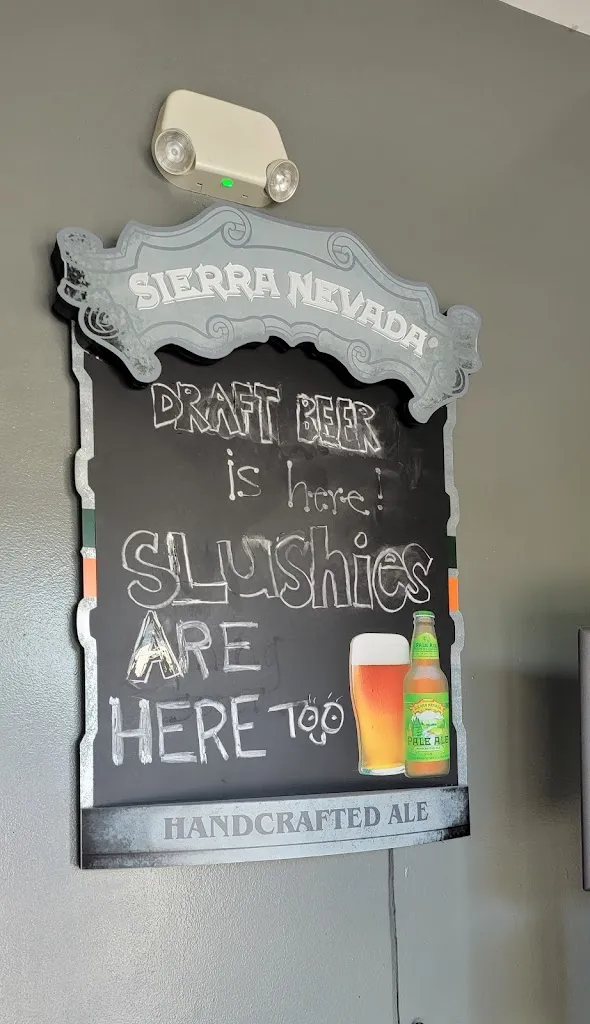 SIERRA NEVADA®
DRAFT BEER
is here!
SLushies
ARE
HERE TOO
PALE ALE
HANDCRAFTED ALE